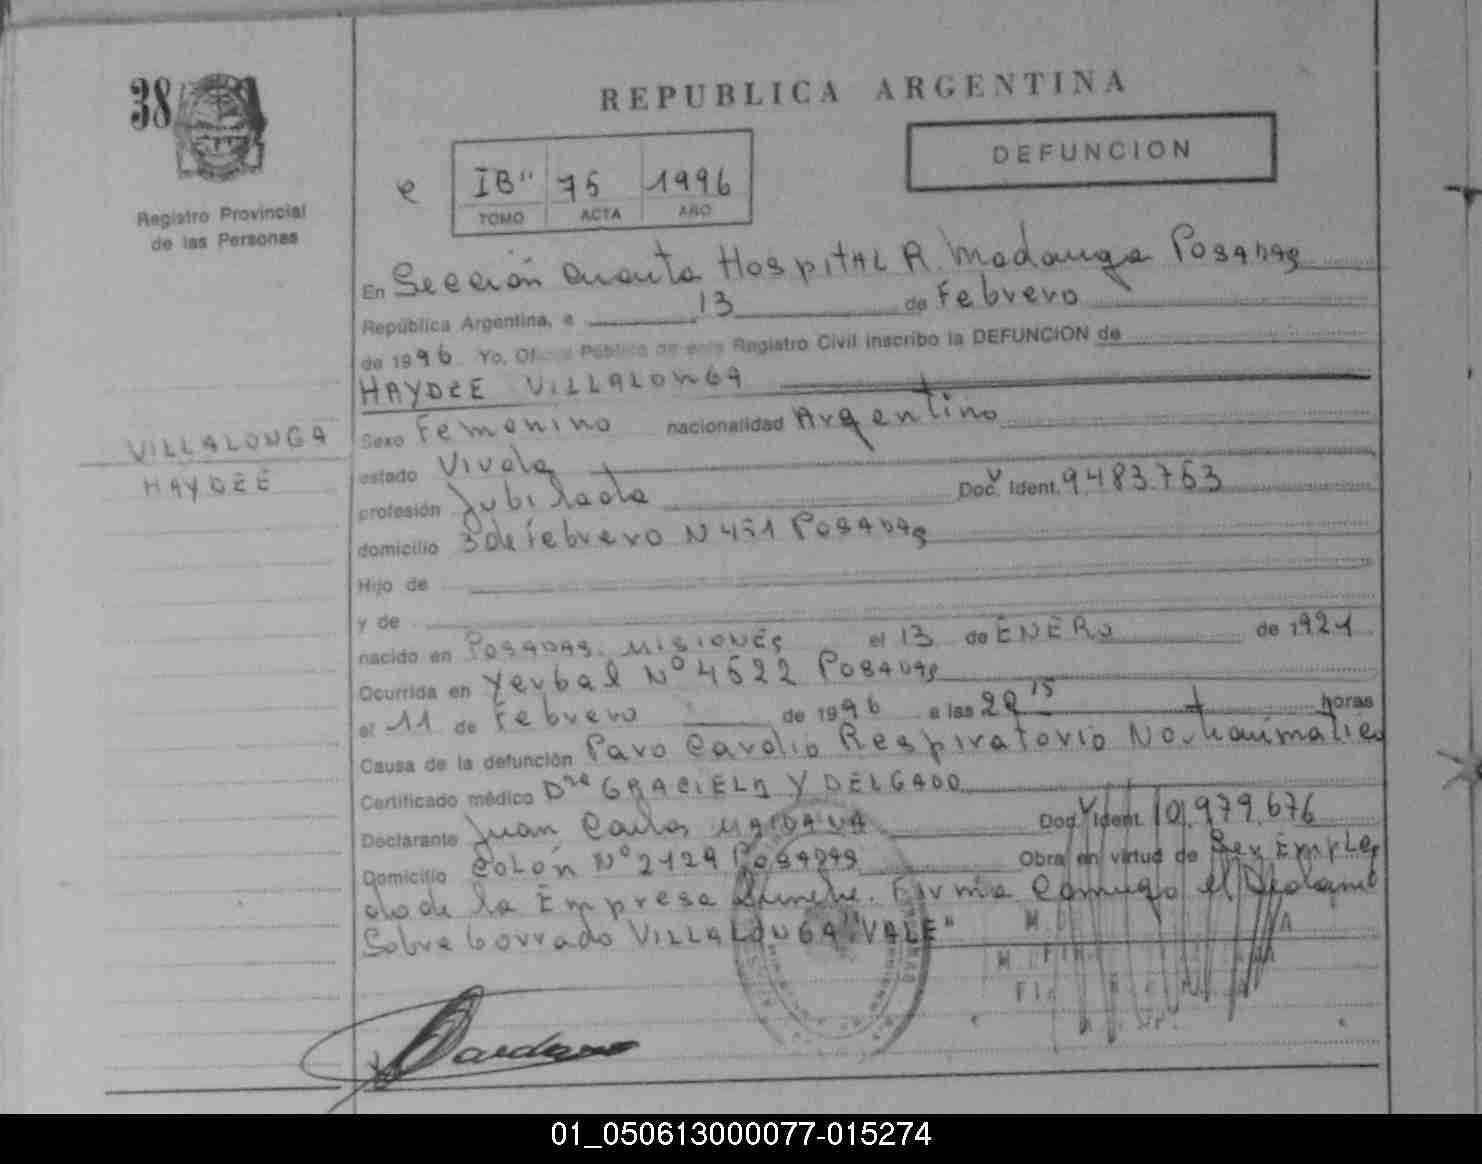 38
REPUBLICA ARGENTINA
DEFUNCION
IB" 75 1996
TOMO ACTA AÑO
Registro Provincial
de las Personas
En Sección Cuarta Hospital R. Madariaga Posadas
República Argentina, a 13 de Febrero
de 1996 Yo, Oficial Público de este Registro Civil inscribo la DEFUNCION de
HAYDEE VILLALONGA
VILLALONGA
HAYDEE
Sexo Femenino nacionalidad Argentino
estado Viuda
profesión Jubilada Doc. Ident. 9.483.763
domicilio 3 de Febrero N 451 Posadas
Hijo de
y de
nacido en Posadas Misiones el 13 de ENERO de 1921
Ocurrida en Yerbal Nº 4622 Posadas
el 11 de Febrero de 1996 a las 20 15 horas
Causa de la defunción Paro Cardio Respiratorio No traumatico
Certificado médico Dra GRACIELA Y DELGADO
Declarante Juan Carlos MAIDANA Doc. Ident. 10.979.676
Domicilio COLÓN Nº 2129 Posadas Obra en virtud de Ser Emplea
do de la Empresa Firma Conmigo el
Sobre borrado VILLALONGA "VALE"
01_050613000077-015274